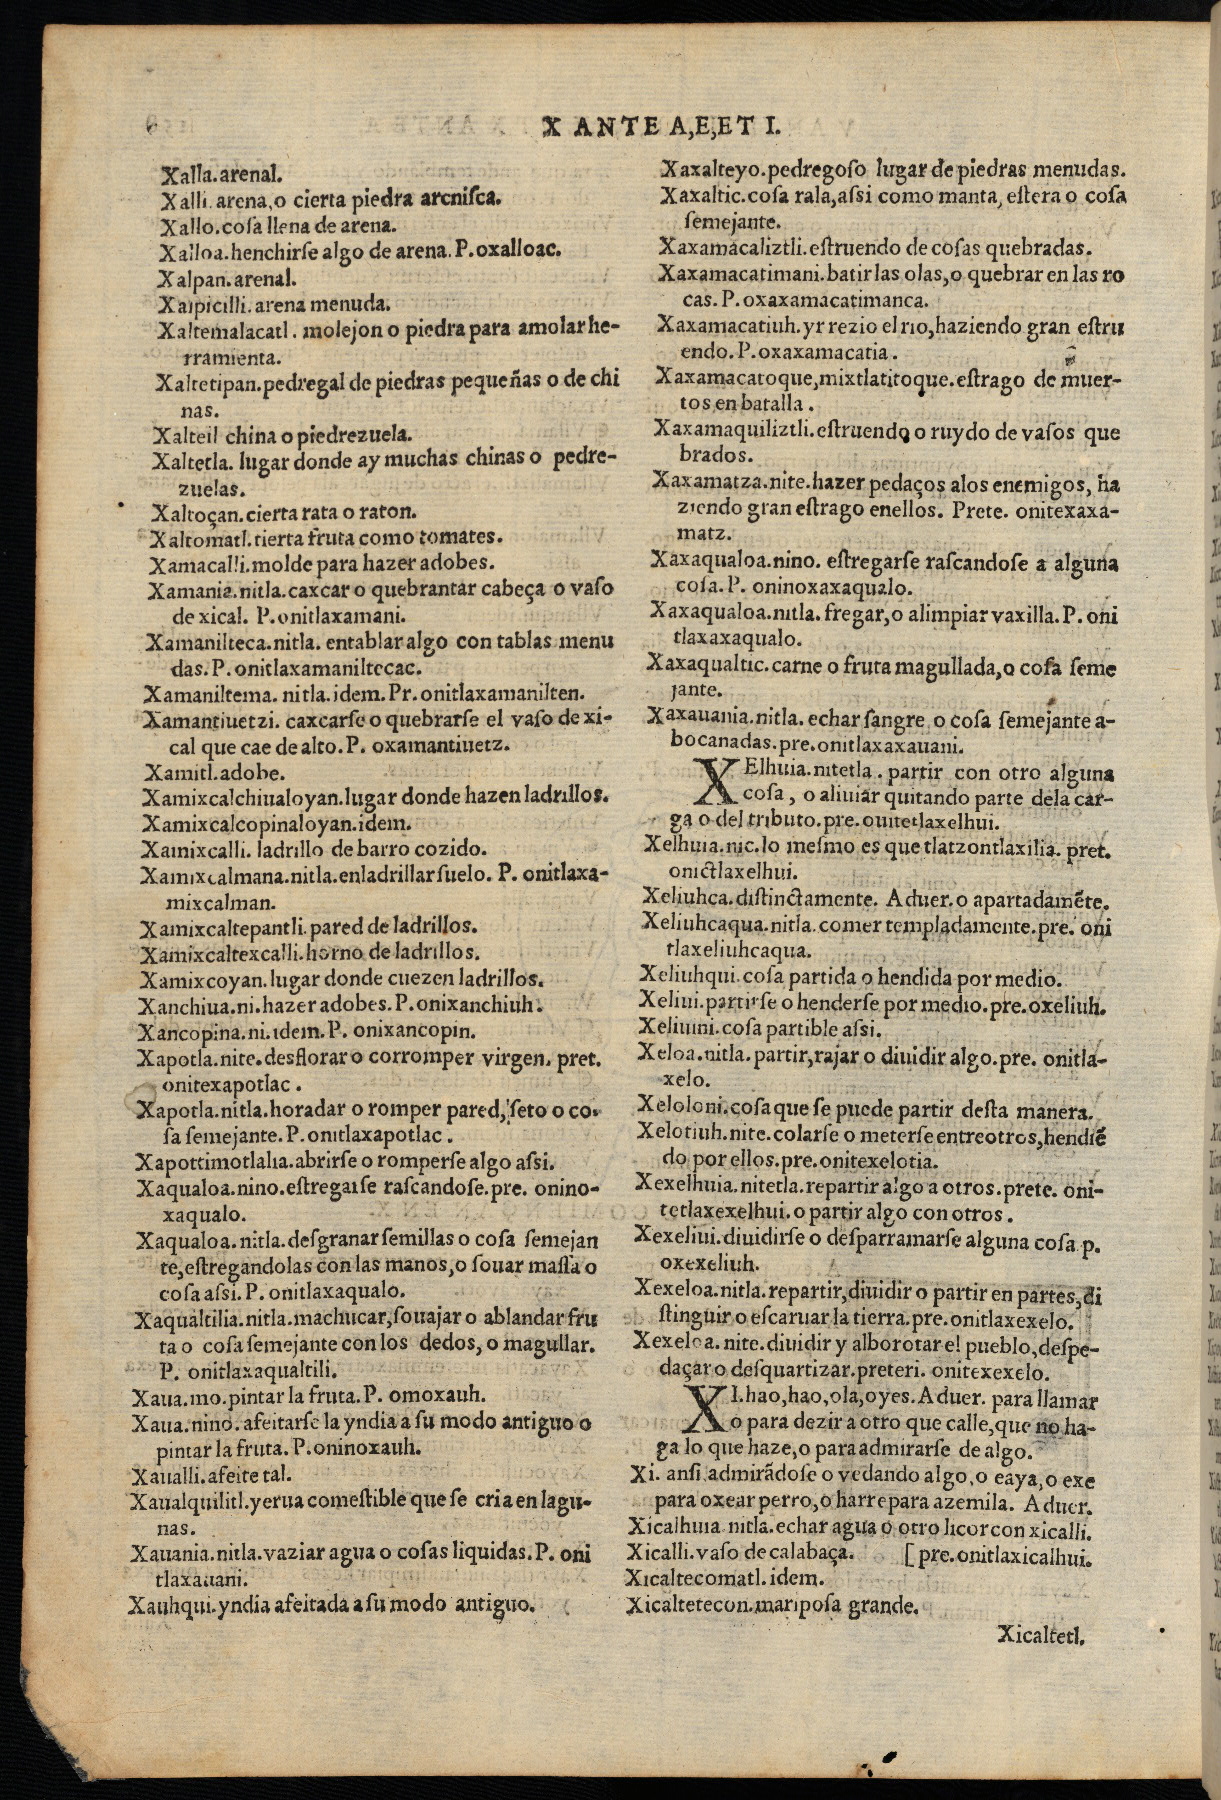 X ANTE A,E,ET I.
Xalla.arenal.
Xalli.arena,o cierta piedra arenisca.
Xallo.cosa llena de arena.
Xalloa.henchirse algo de arena.P.oxalloac.
Xalpan.arenal.
Xalpicilli.arena menuda.
Xaltemalacatl. molejon o piedra para amolar he-
rramienta.
Xaltetipan.pedregal de piedras pequeñas o de chi
nas.
Xaltetl china o piedrezuela.
Xaltetla. lugar donde ay muchas chinas o pedre-
zuelas.
Xaltoçan.cierta rata o raton.
Xaltomatl.cierta fruta como tomates.
Xamacalli.molde para hazer adobes.
Xamania.nitla.caxcar o quebrantar cabeça o vaso
de xical. P.onitlaxamani.
Xamanilteca.nitla. entablar algo con tablas menu
das.P.onitlaxamaniltecac.
Xamaniltema. nitla.idem.Pr.onitlaxamanilten.
Xamantiuetzi. caxcarse o quebrarse el vaso de xi-
cal que cae de alto.P. oxamantiuetz.
Xamitl.adobe.
Xamixcalchiualoyan.lugar donde hazen ladrillos.
Xamixcalcopinaloyan.idem.
Xamixcalli. ladrillo de barro cozido.
Xamixcalmana.nitla.enladrillar suelo. P. onitlaxa-
mixcalman.
Xamixcaltepantli.pared de ladrillos.
Xamixcaltexcalli.horno de ladrillos.
Xamixcoyan.lugar donde cuezen ladrillos.
Xanchiua.ni.hazer adobes.P.onixanchiuh.
Xancopina.ni.idem.P. onixancopin.
Xapotla.nite.desflorar o corromper virgen. pret.
onitexapotlac.
Xapotla.nitla.horadar o romper pared, seto o co-
sa semejante.P.onitlaxapotlac.
Xapottimotlalia.abrirse o romperse algo assi.
Xaqualoa.nino.estregarse rascandose.pre. onino-
xaqualo.
Xaqualoa.nitla.desgranar semillas o cosa semejan
te,estregandolas con las manos,o souar massa o
cosa assi.P. onitlaxaqualo.
Xaqualtilia.nitla.machucar,souajar o ablandar fru
ta o cosa semejante con los dedos, o magullar.
P. onitlaxaqualtili.
Xaua.mo.pintar la fruta.P. omoxauh.
Xaua.nino.afeitarse la yndia a su modo antiguo o
pintar la fruta.P.oninoxauh.
Xaualli.afeite tal.
Xaualquilitl.yerua comestible que se cria en lagu-
nas.
Xauania.nitla.vaziar agua o cosas liquidas.P. oni
tlaxauani.
Xauhqui.yndia afeitada a su modo antiguo.
Xaxalteyo.pedregoso lugar de piedras menudas.
Xaxaltic.cosa rala,assi como manta, estera o cosa
semejante.
Xaxamacaliztli.estruendo de cosas quebradas.
Xaxamacatimani.batir las olas,o quebrar en las ro
cas. P.oxaxamacatimanca.
Xaxamacatiuh.yr rezio el rio,haziendo gran estru
endo.P.oxaxamacatia.
Xaxamacatoque,mixtlatitoque.estrago de muer-
tos en batalla.
Xaxamaquiliztli.estruendo o ruydo de vasos que
brados.
Xaxamatza.nite.hazer pedaços alos enemigos, ha
ziendo gran estrago enellos. Prete. onitexaxa-
matz.
Xaxaqualoa.nino. estregarse rascandose a alguna
cosa.P. oninoxaxaqualo.
Xaxaqualoa.nitla.fregar,o alimpiar vaxilla.P.oni
tlaxaxaqualo.
Xaxaqualtic.carne o fruta magullada,o cosa seme
jante.
Xaxauania.nitla.echar sangre o cosa semejante a-
bocanadas.pre.onitlaxaxauani.
XElhuia.nitetla. partir con otro alguna
cosa, o aliuiar quitando parte dela car-
ga o del tributo.pre.onitetlaxelhui.
Xelhuia.nic.lo mesmo es que tlatzontlaxilia. pret.
onictlaxelhui.
Xeliuhca.distinctamente. Aduer.o apartadamẽte.
Xeliuhcaqua.nitla.comer templadamente.pre. oni
tlaxeliuhcaqua.
Xeliuhqui.cosa partida o hendida por medio.
Xeliui.partirse o henderse por medio.pre.oxeliuh.
Xeliuini.cosa partible assi.
Xeloa.nitla.partir,rajar o diuidir algo.pre. onitla-
xelo.
Xeloloni.cosa que se puede partir desta manera.
Xelotiuh.nite.colarse o meterse entreotros,hendiẽ
do por ellos.pre.onitexelotia.
Xexelhuia.nitetla.repartir algo a otros.prete. oni-
tetlaxexelhui.o partir algo con otros.
Xexeliui.diuidirse o desparramarse alguna cosa.p.
oxexeliuh.
Xexeloa.nitla.repartir,diuidir o partir en partes,di
stinguir o escaruar la tierra.pre.onitlaxexelo.
Xexeloa.nite.diuidir y alborotar el pueblo,despe-
daçar o desquartizar.preteri. onitexexelo.
XI.hao,hao,ola,oyes.Aduer. para llamar
o para dezir a otro que calle,que no ha-
ga lo que haze,o para admirarse de algo.
Xi. ansi admirãdose o vedando algo,o eaya,o exe
para oxear perro,o harre para azemila. Aduer.
Xicalhuia nitla.echar agua o otro licor con xicalli.
Xicalli.vaso de calabaça. [pre.onitlaxicalhui.
Xicaltecomatl.idem.
Xicaltetecon.mariposa grande.
Xicaltetl.